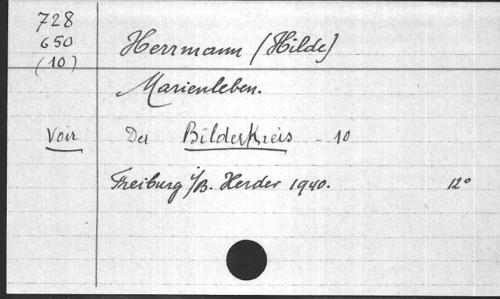 728
650
(10)
Herrmann (Hilde)
Marienleben.
Voir Der Bilderkreis - 10
Freiburg i/B. Herder 1940. 12°